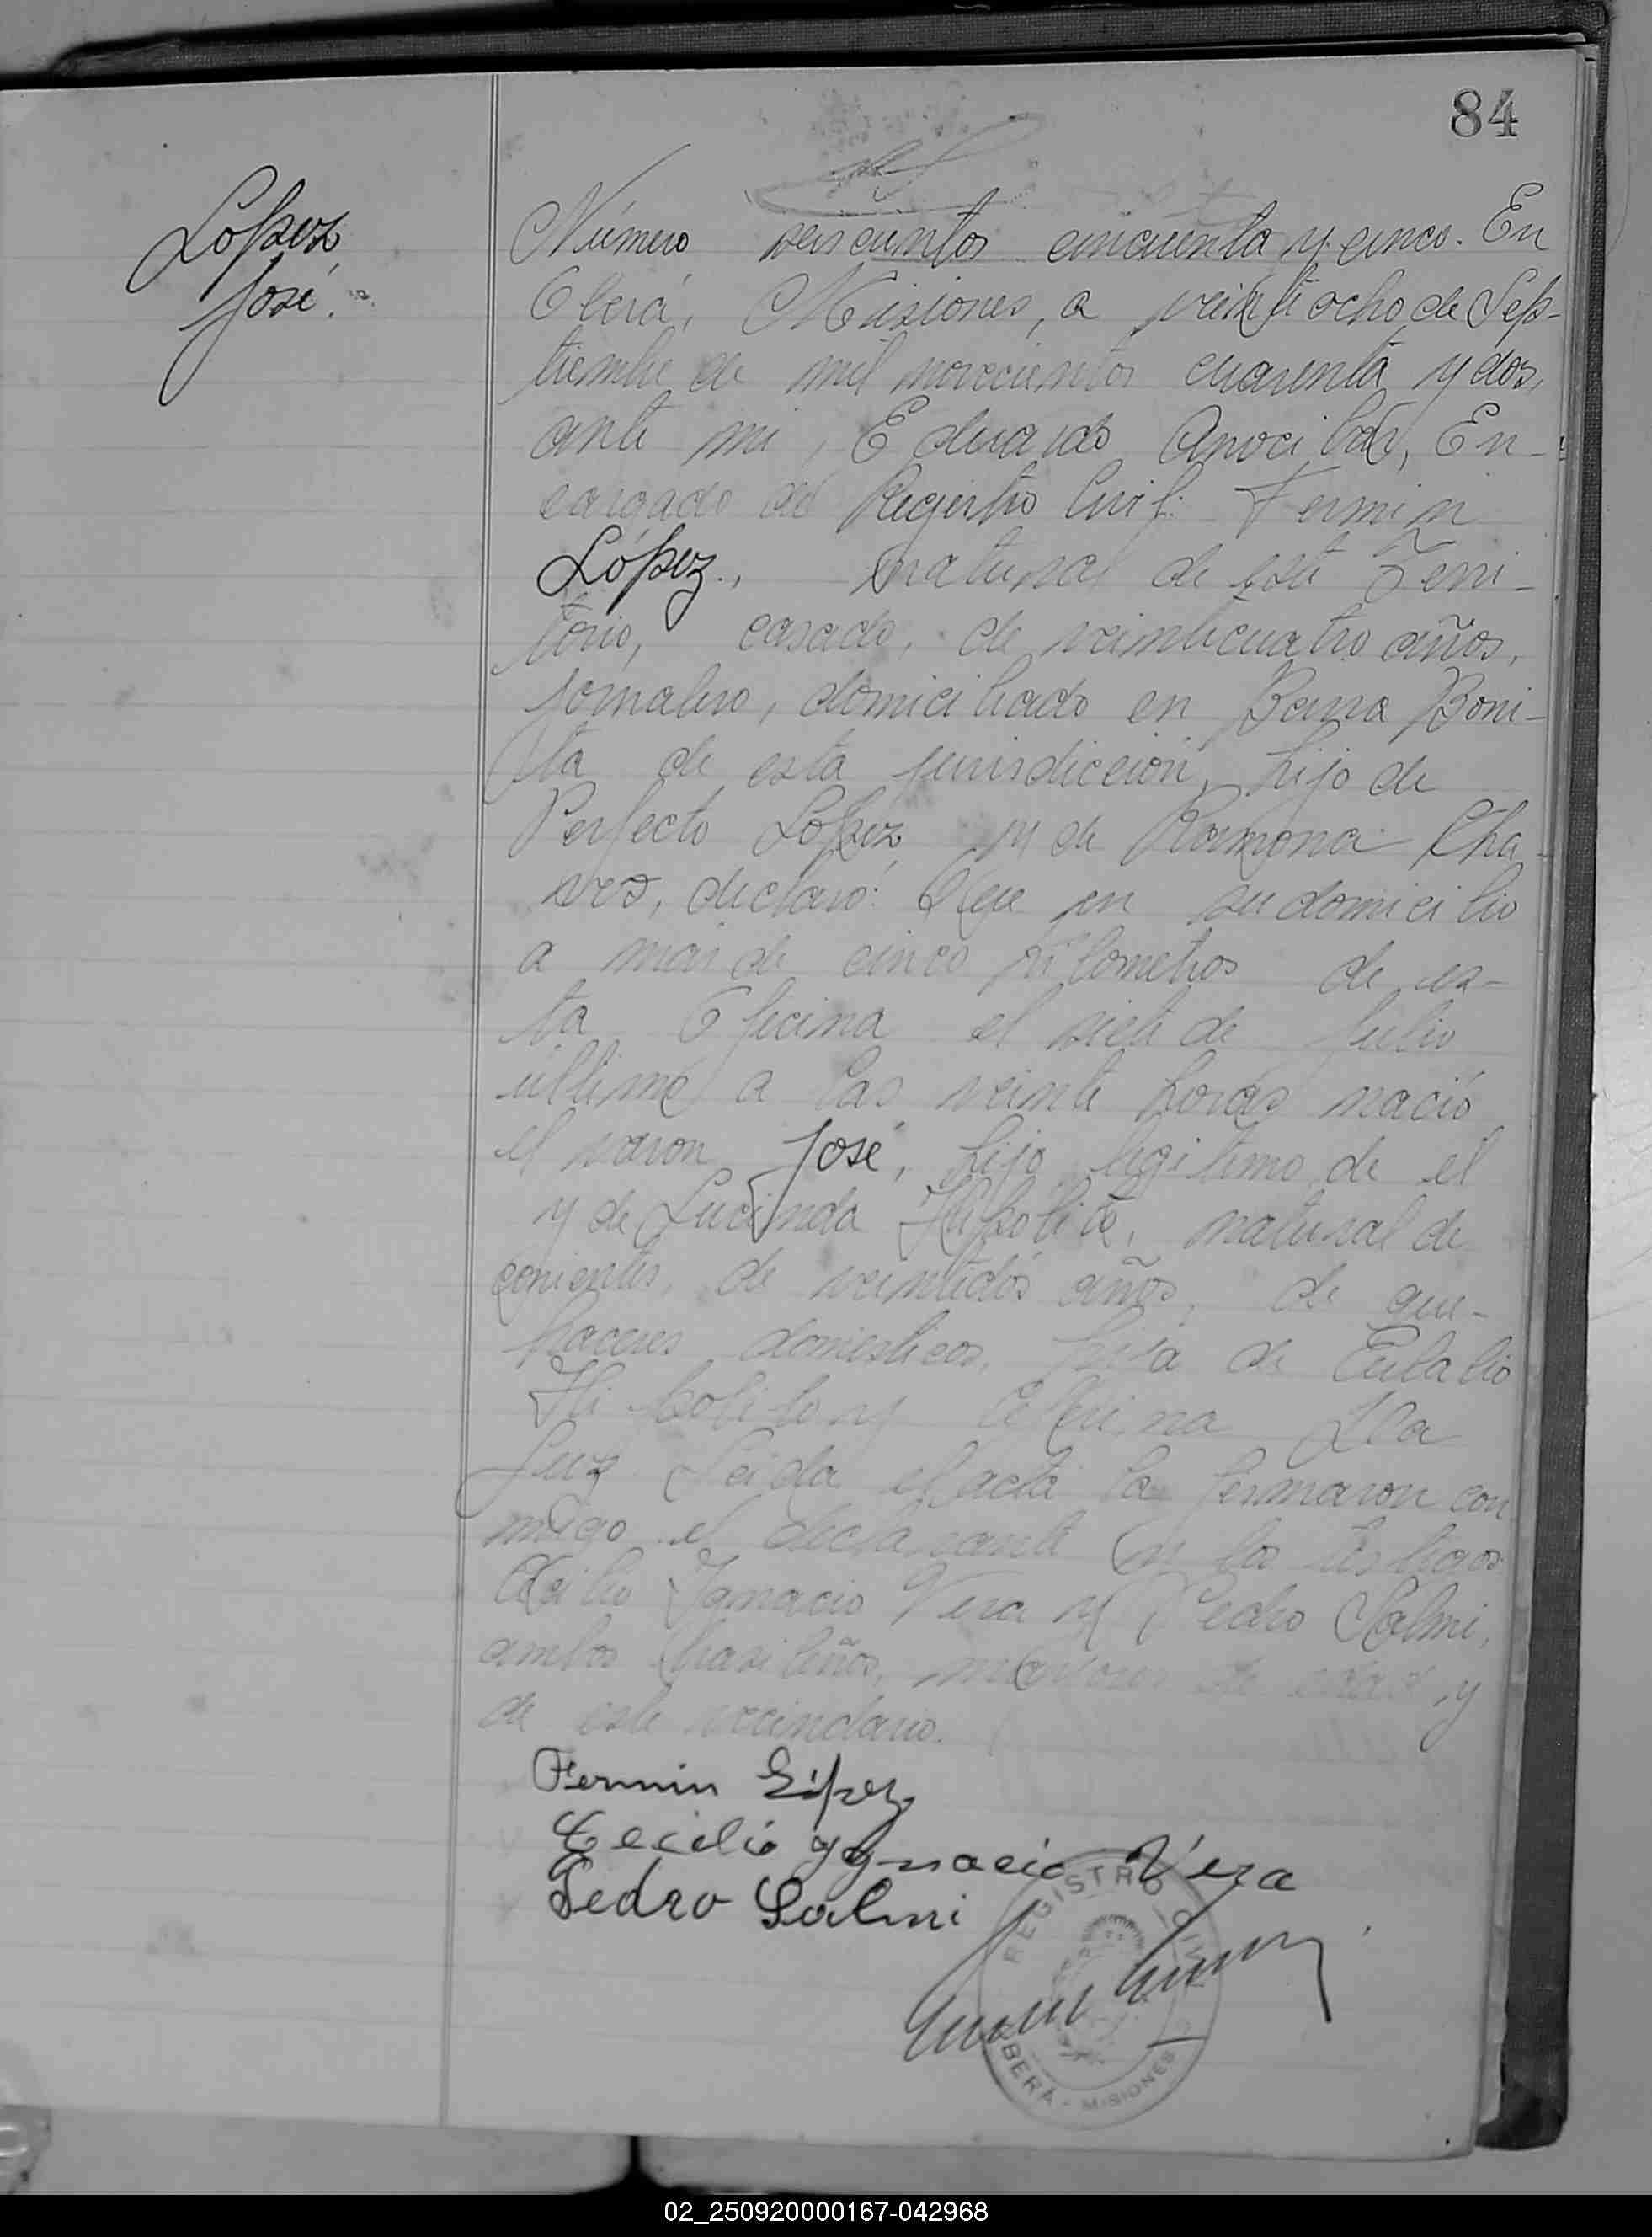 84
López,
José.
Número seiscientos cincuenta y cinco. En
Oberá, Misiones, a veintiocho de Sep-
tiembre de mil novecientos cuarenta y dos,
ante mi, Eduardo Arocibar, En-
cargado del Registro Civil: Fermin
López, natural de este Terri-
torio, casado, de veinticuatro años,
jornalero, domiciliado en Barra Boni-
ta de esta jurisdicción, hijo de
Perfecto López y de Ramona Cha-
ves, declaró: Que en su domicilio
a mas de cinco kilometros de es-
ta Oficina el siete de Julio
último a las veinte horas nació
el varon José, hijo legitimo de el
y de Lucinda Hipolito, natural de
corrientes, de veintidos años, de que-
haceres domesticos, hija de Eulalio
Hipolito y Da
Luz Leida el acta la firmaron con
migo el declarante y los testigos
Ignacio Vera y Pedro Salmi,
ambos brasileños, mayores de edad y
de este vecindario.
Fermin López
Cecilio Ygnacio Vera
Pedro Salmi
REGISTRO CIVIL
OBERÁ - MISIONES
02_250920000167-042968